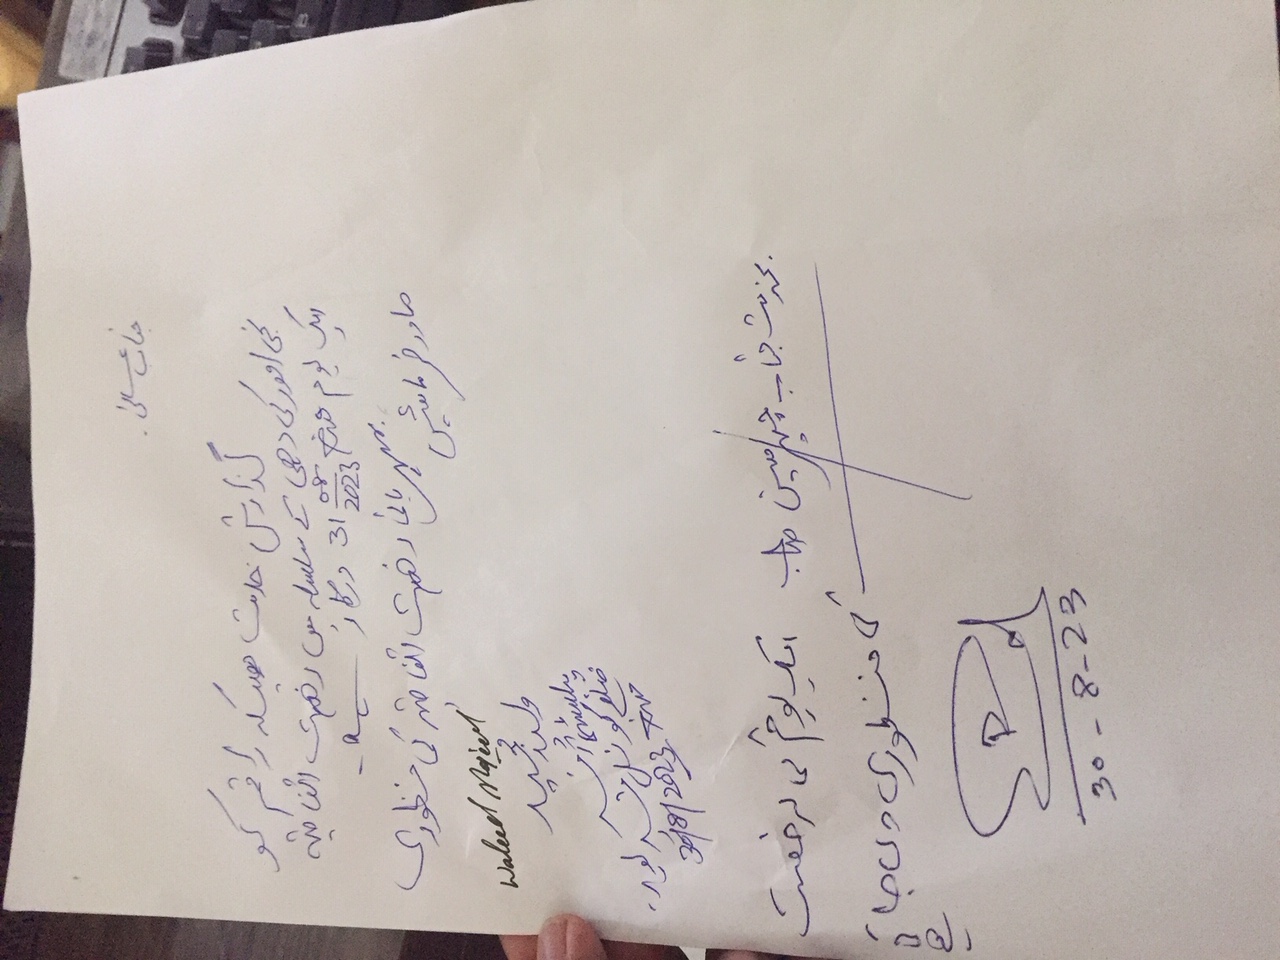 جناب عالی.
گذارش خدمت ھیکہ راقم کو
نجی امور کی دھی کے سلسلہ میں رخصت اتفاقیہ
ایک یوم مورخہ 31/08/2023 درکار ہے۔
بمہربانی رخصت اتفاقیہ کی منظوری
صادر فرمائیں
Waleed Majeed
ولید مجید
پبلسٹی آفسر
ضلع کونسل
مورخہ 30/8/2023
بخدمت جناب چیئرمین صاحب ایک یوم کی رخصت
کی منظوری دی جاتی
ہے
30-8-23